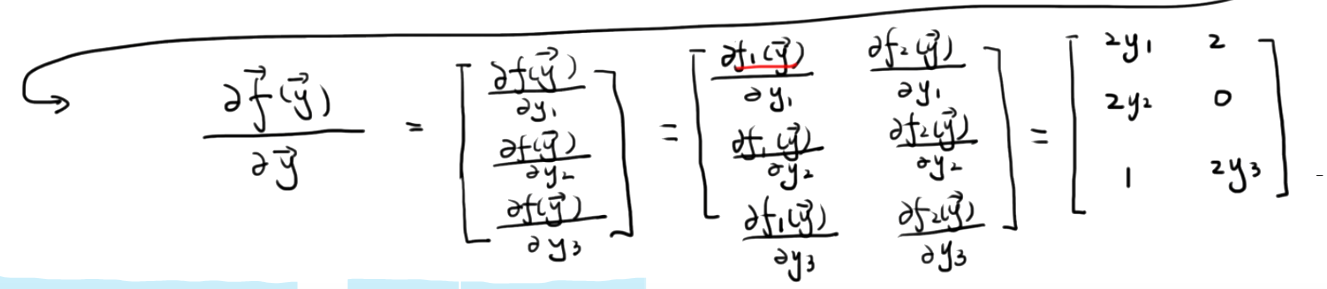 $\frac{\partial \vec{f}(\vec{y})}{\partial \vec{y}} = \begin{bmatrix} \frac{\partial f(\vec{y})}{\partial y_1} \\ \frac{\partial f(\vec{y})}{\partial y_2} \\ \frac{\partial f(\vec{y})}{\partial y_3} \end{bmatrix} = \begin{bmatrix} \frac{\partial f_1(\vec{y})}{\partial y_1} & \frac{\partial f_2(\vec{y})}{\partial y_1} \\ \frac{\partial f_1(\vec{y})}{\partial y_2} & \frac{\partial f_2(\vec{y})}{\partial y_2} \\ \frac{\partial f_1(\vec{y})}{\partial y_3} & \frac{\partial f_2(\vec{y})}{\partial y_3} \end{bmatrix} = \begin{bmatrix} 2y_1 & 2 \\ 2y_2 & 0 \\ 1 & 2y_3 \end{bmatrix}$